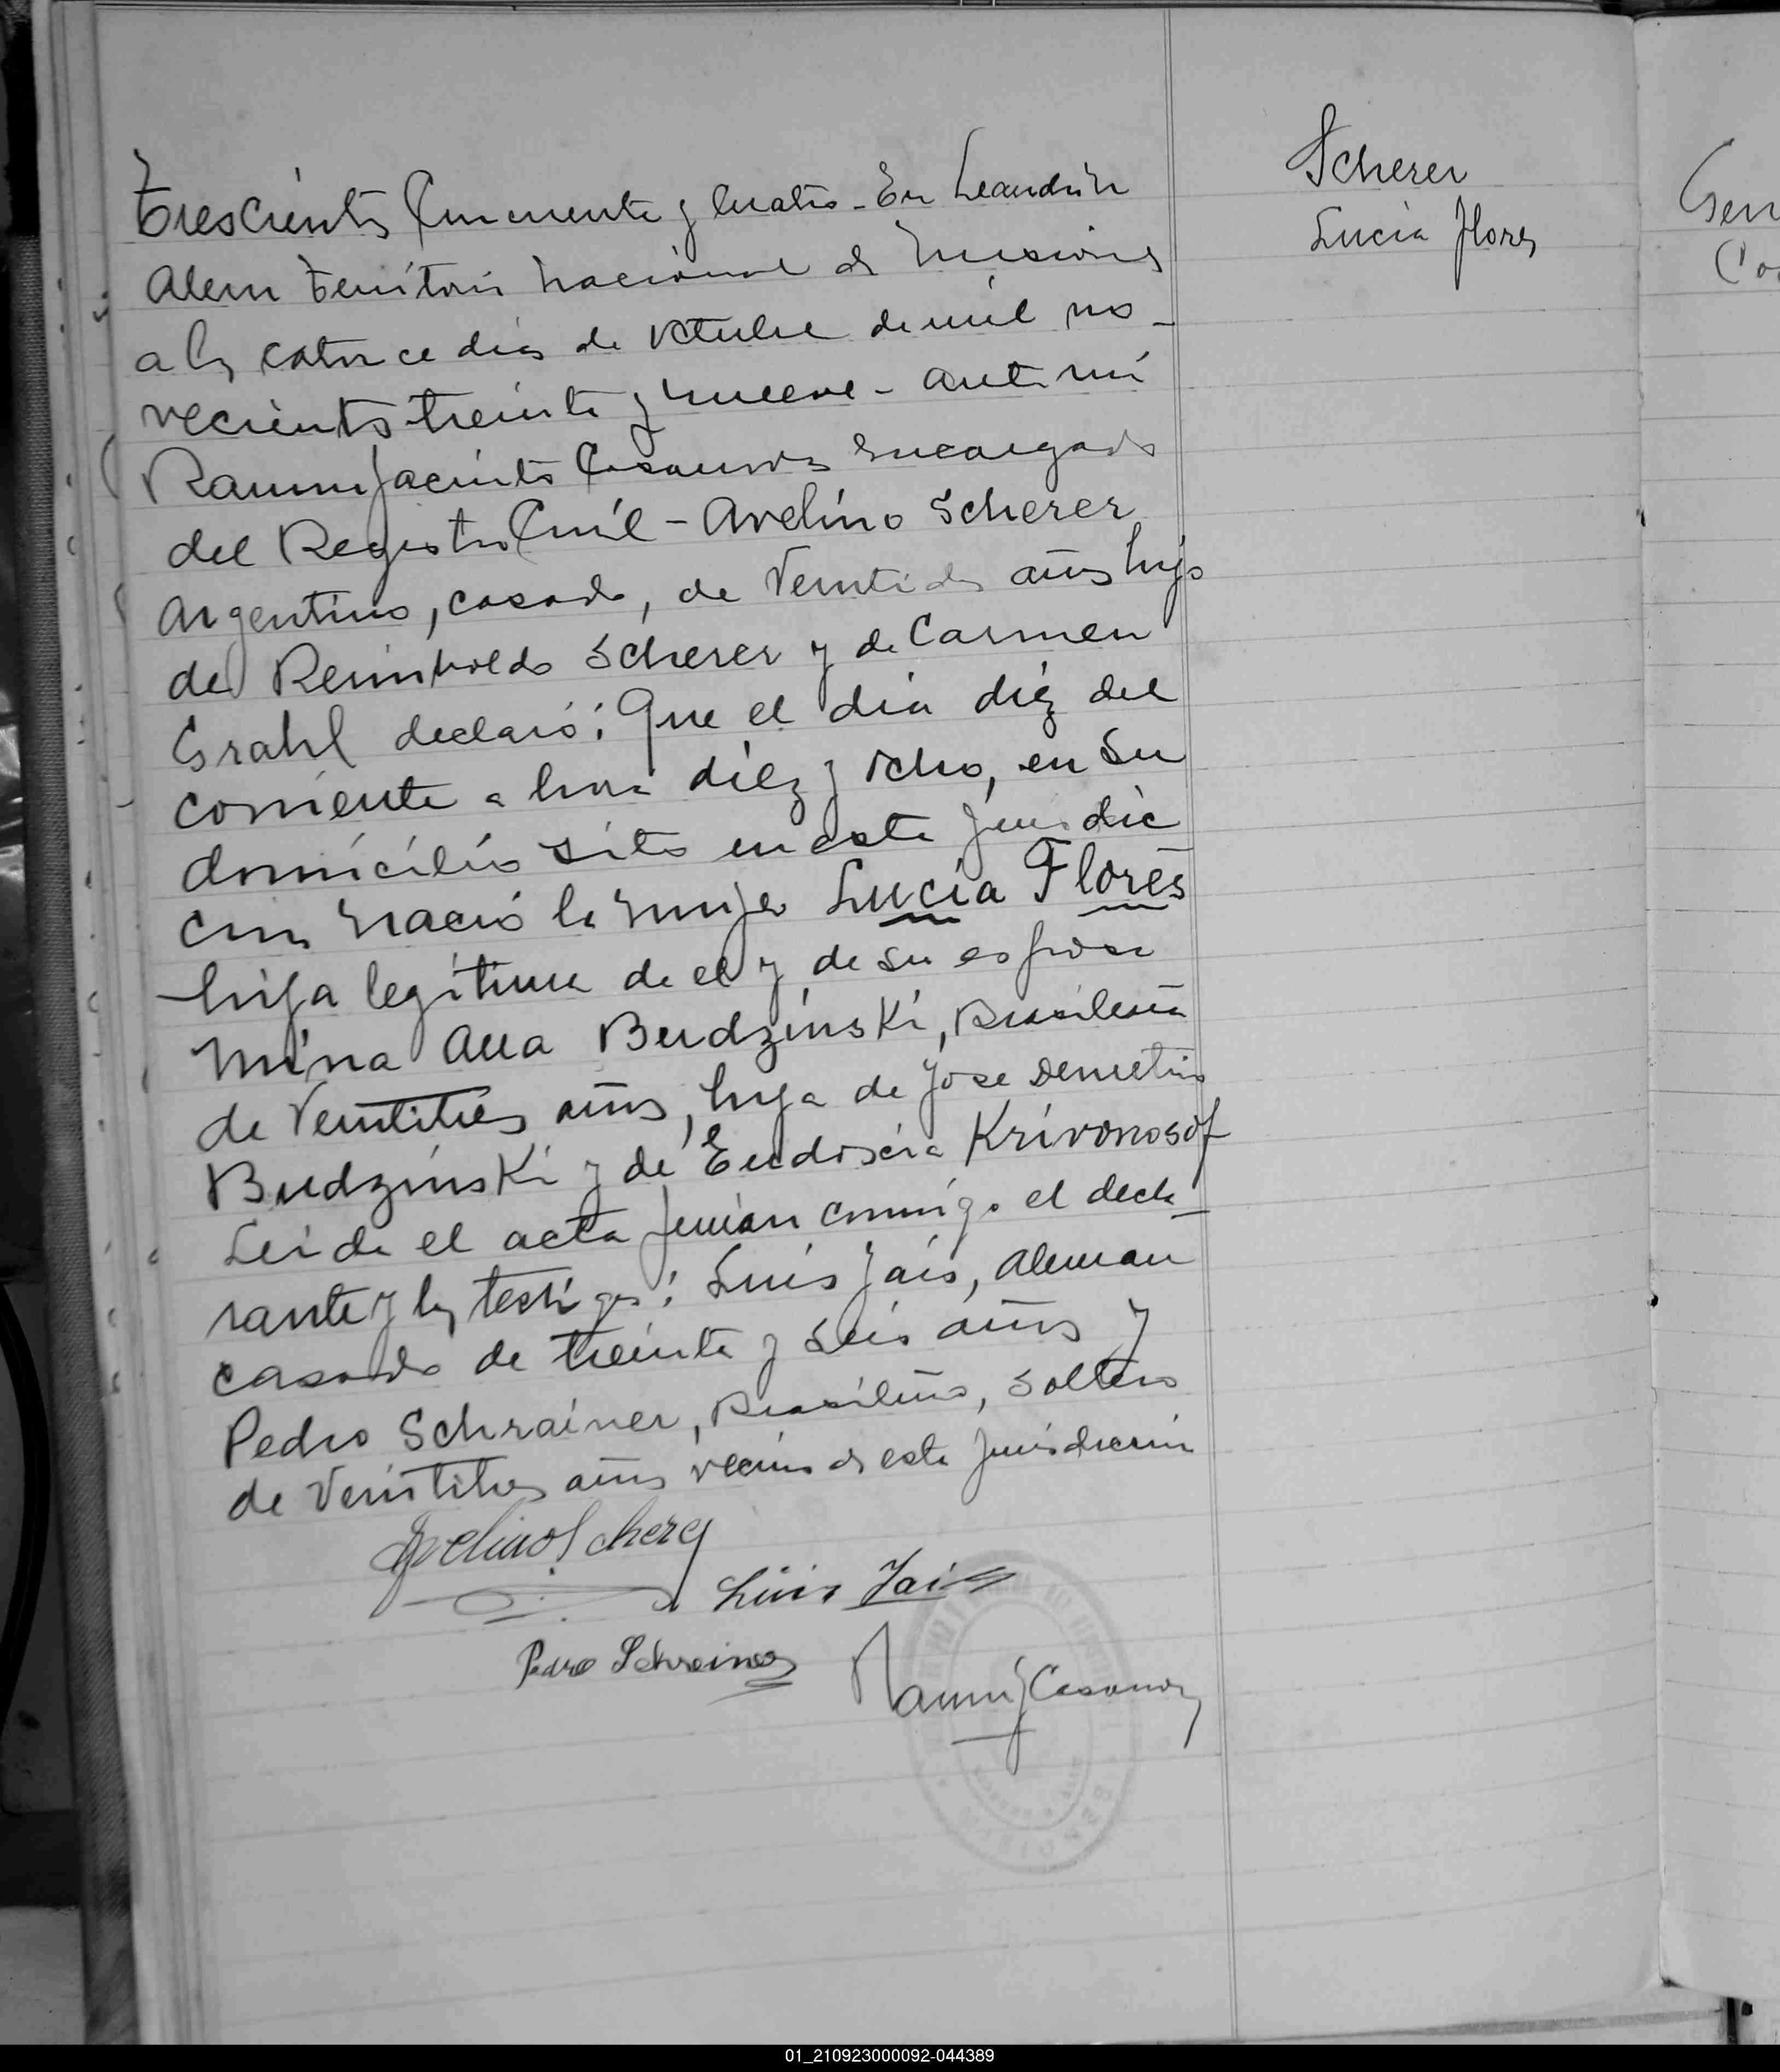 Trescientos Cincuenta y Cuatro - En Leandro N
Alem Territorio Nacional de Misiones
a los catorce dias de Octubre de mil no-
vecientos treinta y nueve - ante mi
Ramon Jacinto Casanova Encargado
del Registro Civil - Avelino Scherer
Argentino, casado, de Veintidos años hijo
de Reinholdo Scherer y de Carmen
Grahl declaró: Que el dia diéz del
corriente a hora diéz y ocho, en su
domicilio sito en esta jurisdic
cion nació la mujer Lucia Flores
hija legitima de el y de su esposa
Mina Budzinski, Brasileña
de Veintitres años, hija de Jose Demetrio
Budzinski y de Eudoxia Krivonosof
Leida el acta firman conmigo el decla-
rante y los testigos: Luis Jais, Aleman
casado de treinta y seis años y
Pedro Schrainer, Brasileño, soltero
de Veintitres años vecinos de esta jurisdiccion
Avelino Scherer
Luis Jais
Pedro Schreiner
Ramon J Casanova
Scherer
Lucia Flores
01_210923000092-044389